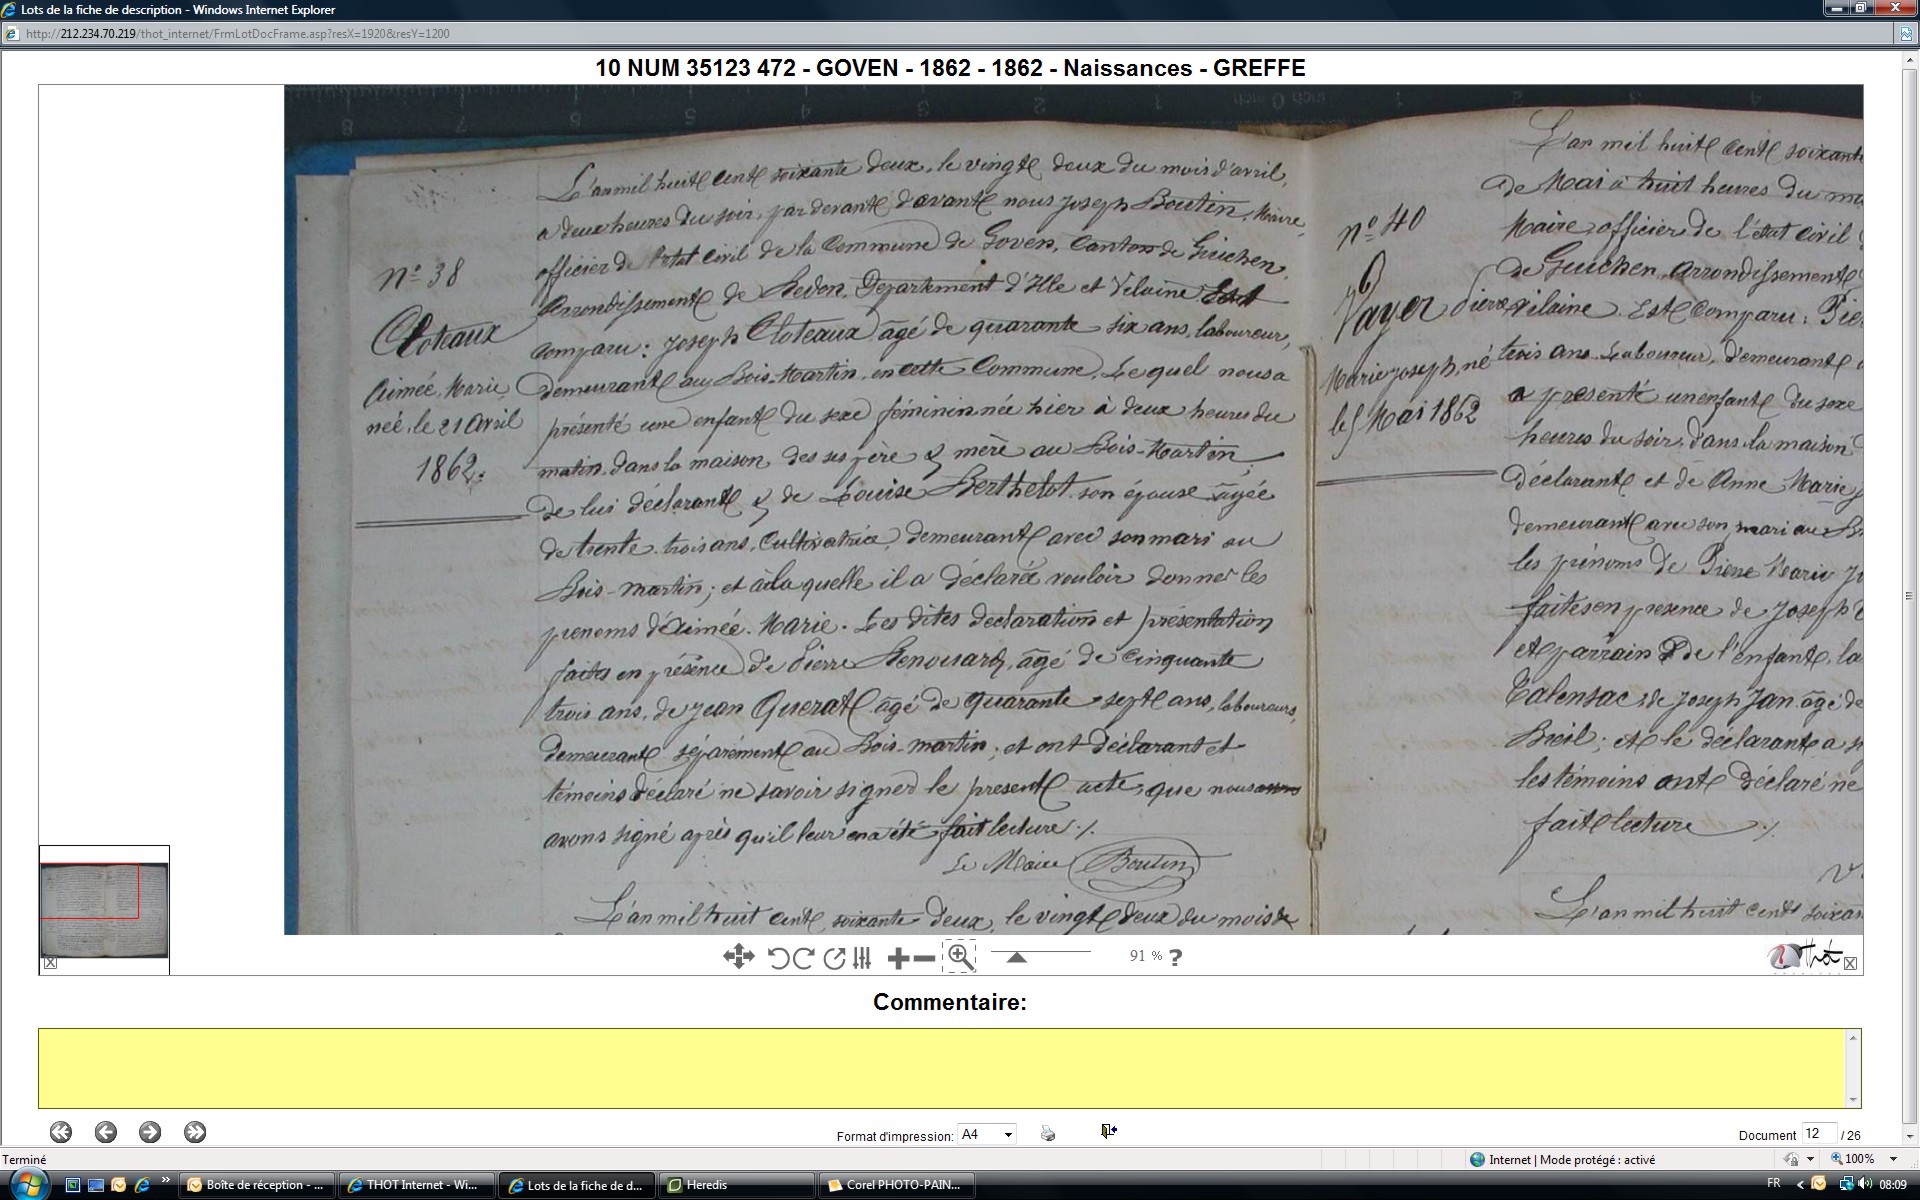 Lots de la fiche de description - Windows Internet Explorer
http://212.234.70.219/thot_internet/FrmLotDocFrame.asp?resX=1920&resY=1200
10 NUM 35123 472 - GOVEN - 1862 - 1862 - Naissances - GREFFE
nº 38
Cloteaux
Aimée, Marie,
née, le 21 Avril
1862.
L'an mil huit cent soixante deux, le vingt deux du mois d'avril,
a deux heures du soir, par devant d'avant nous Joseph Boutin, Maire,
officier de l'état civil de la Commune de Goven, Canton de Guichen,
Arrondissement de Redon, Département d'Ille et Vilaine Est
comparu: Joseph Cloteaux âgé de quarante six ans, laboureur,
demeurant au Bois-Martin, en cette Commune, Lequel nous a
présenté une enfant du sexe féminin née hier à deux heures du
matin, dans la maison des ses père & mère au Bois-Martin,
de lui déclarant & de Louise Berthelot son épouse âgée
de trente trois ans, Cultivatrice, demeurant avec son mari au
Bois-martin; et à la quelle il a déclaré vouloir donner les
prenoms d'Aimée Marie. Les dites declaration et présentation
faites en présence de Pierre Renouard, âgé de cinquante
trois ans, de Jean Querat âgé de quarante sept ans, laboureurs,
demeurant séparément au Bois-martin; et ont déclarant et
témoins déclaré ne savoir signer le present acte, que nous
avons signé après qu'il leur en a été fait lecture ./.
Le Maire Boutin
L'an mil huit cent soixante deux, le vingt deux du mois de
nº 40
Vayer Pierre
Marie Joseph, né
le 5 Mai 1862
L'an mil huit cent soixant
de Mai à huit heures du ma
Maire, officier de l'état civil
de Guichen, Arrondissement
Vilaine. Est Comparu: Pier
trois ans Laboureur, demeurant
a présenté un enfant du sexe
heures du soir, dans la maison
déclarant et de Anne Marie
demeurant avec son mari au
les prénoms de Pierre Marie
faites en presence de Joseph
et parrain de l'enfant, la
Talensac, de Joseph Jan âgé de
Breil; et le déclarant a
les témoins ont déclaré ne
fait lecture ./.
L'an mil huit cent soixan
91 % ?
Thot
Commentaire:
Format d'impression: A4
Document 12 / 26
Terminé
Internet | Mode protégé : activé
100%
Boîte de réception - ...
THOT Internet - Wi...
Lots de la fiche de d...
Heredis
Corel PHOTO-PAIN...
FR
08:09